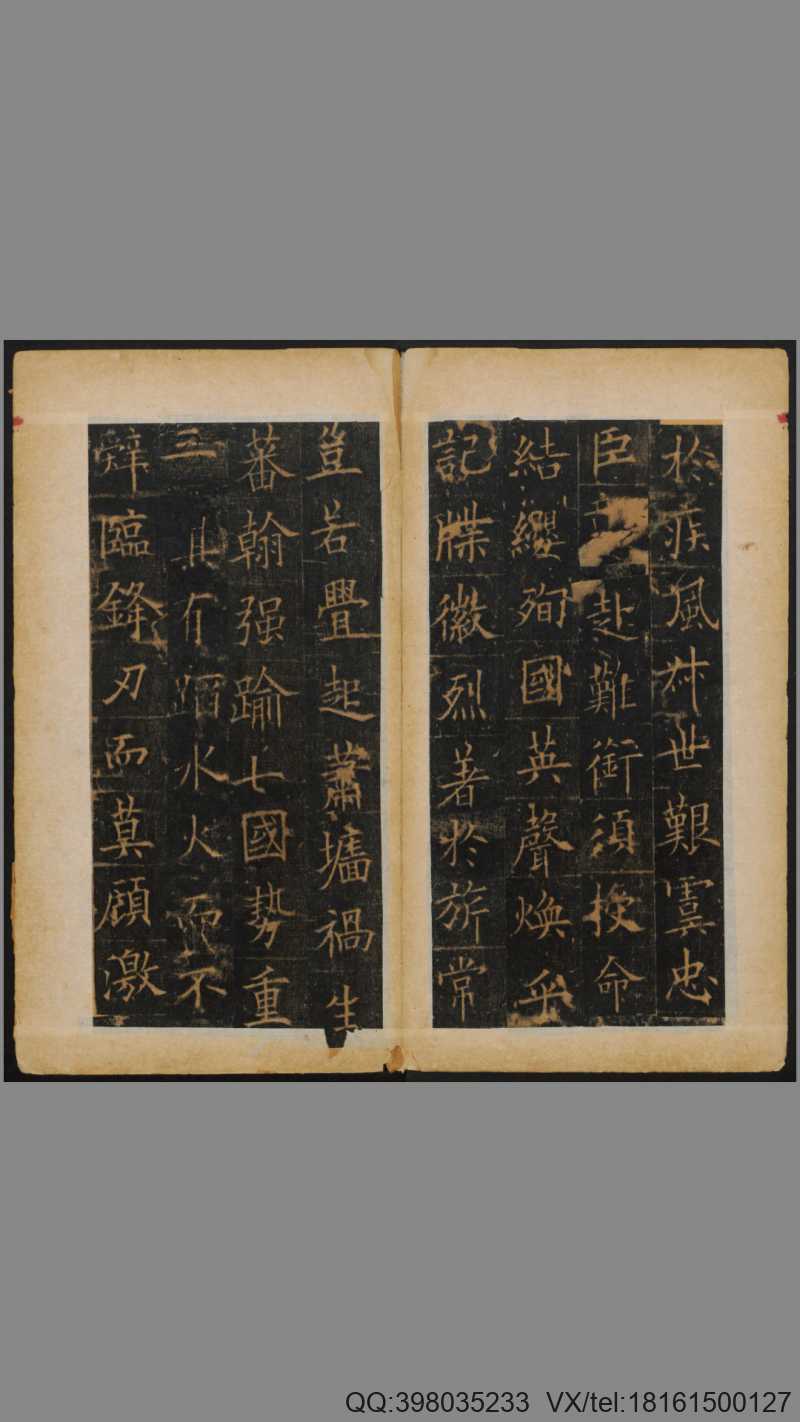 於疾風䒭世艱虞忠
臣赴難銜須授命
結纓殉國英聲煥乎
記牒徽烈著於旂常
豈若舋起蕭墻禍生
蕃翰强踰七國勢重
三其有蹈水火而不
辤臨鋒刃而莫顧激
QQ:398035233 VX/tel:18161500127